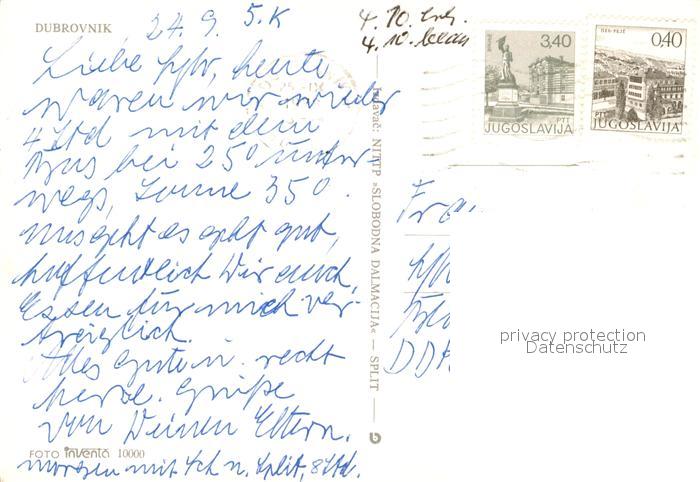 DUBROVNIK, 24.9. 5.K
4. 10. erh.
4. 10. bean
Liebe heute
waren wir wieder
4 Std mit dem
Bus bei 25° unter-
wegs, Sonne 35°.
Uns geht es gut,
hoffentlich Dir auch,
Essen für mich ver-
träglich.
Alles Gute u. recht
herzl. Grüße
von Deinen Eltern.
FOTO inventa 10000
morgen mit Sch n. Split, 8 Std.
Izdavač: NIŠP »SLOBODNA DALMACIJA« — SPLIT —
3,40
PTT
JUGOSLAVIJA
0,40
PTT
JUGOSLAVIJA
Frau
DDR
privacy protection
Datenschutz